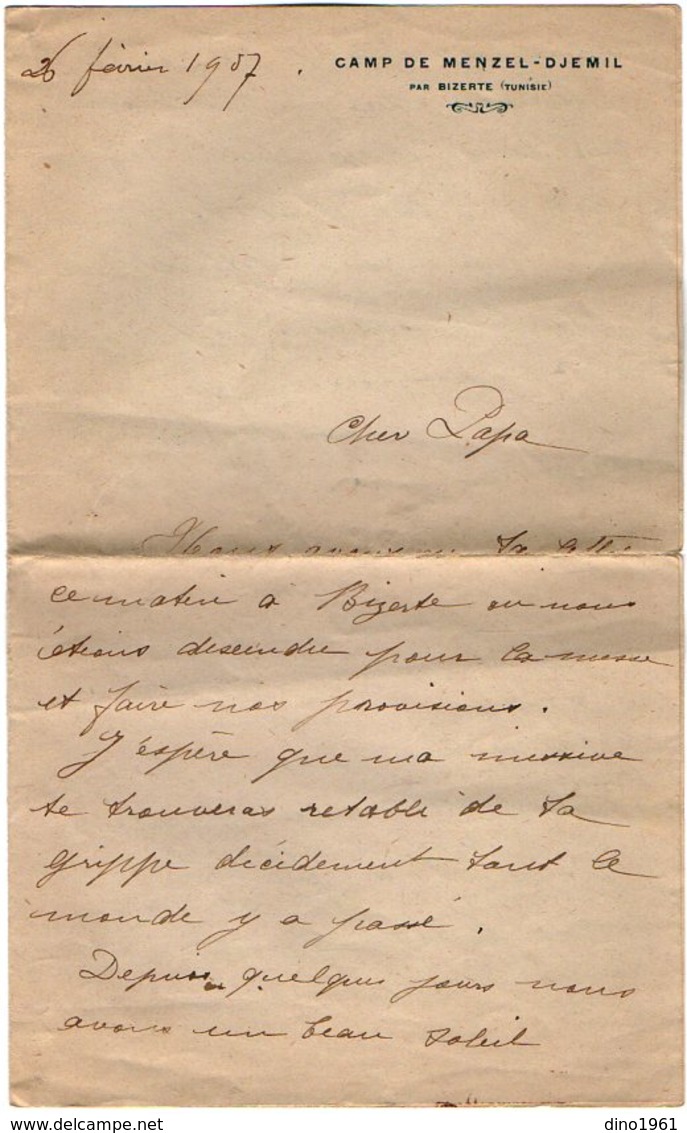 26 février 1907.
CAMP DE MENZEL-DJEMIL
PAR BIZERTE (TUNISIE)
Cher Papa
Nous avons eu ta lettre
ce matin à Bizerte ou nous
étions descendu pour la messe
et faire nos provisions.
J'espère que ma missive
te trouveras retabli de ta
grippe décidement tout le
monde y a passé.
Depuis quelques jours nous
avons un beau soleil
dino1961